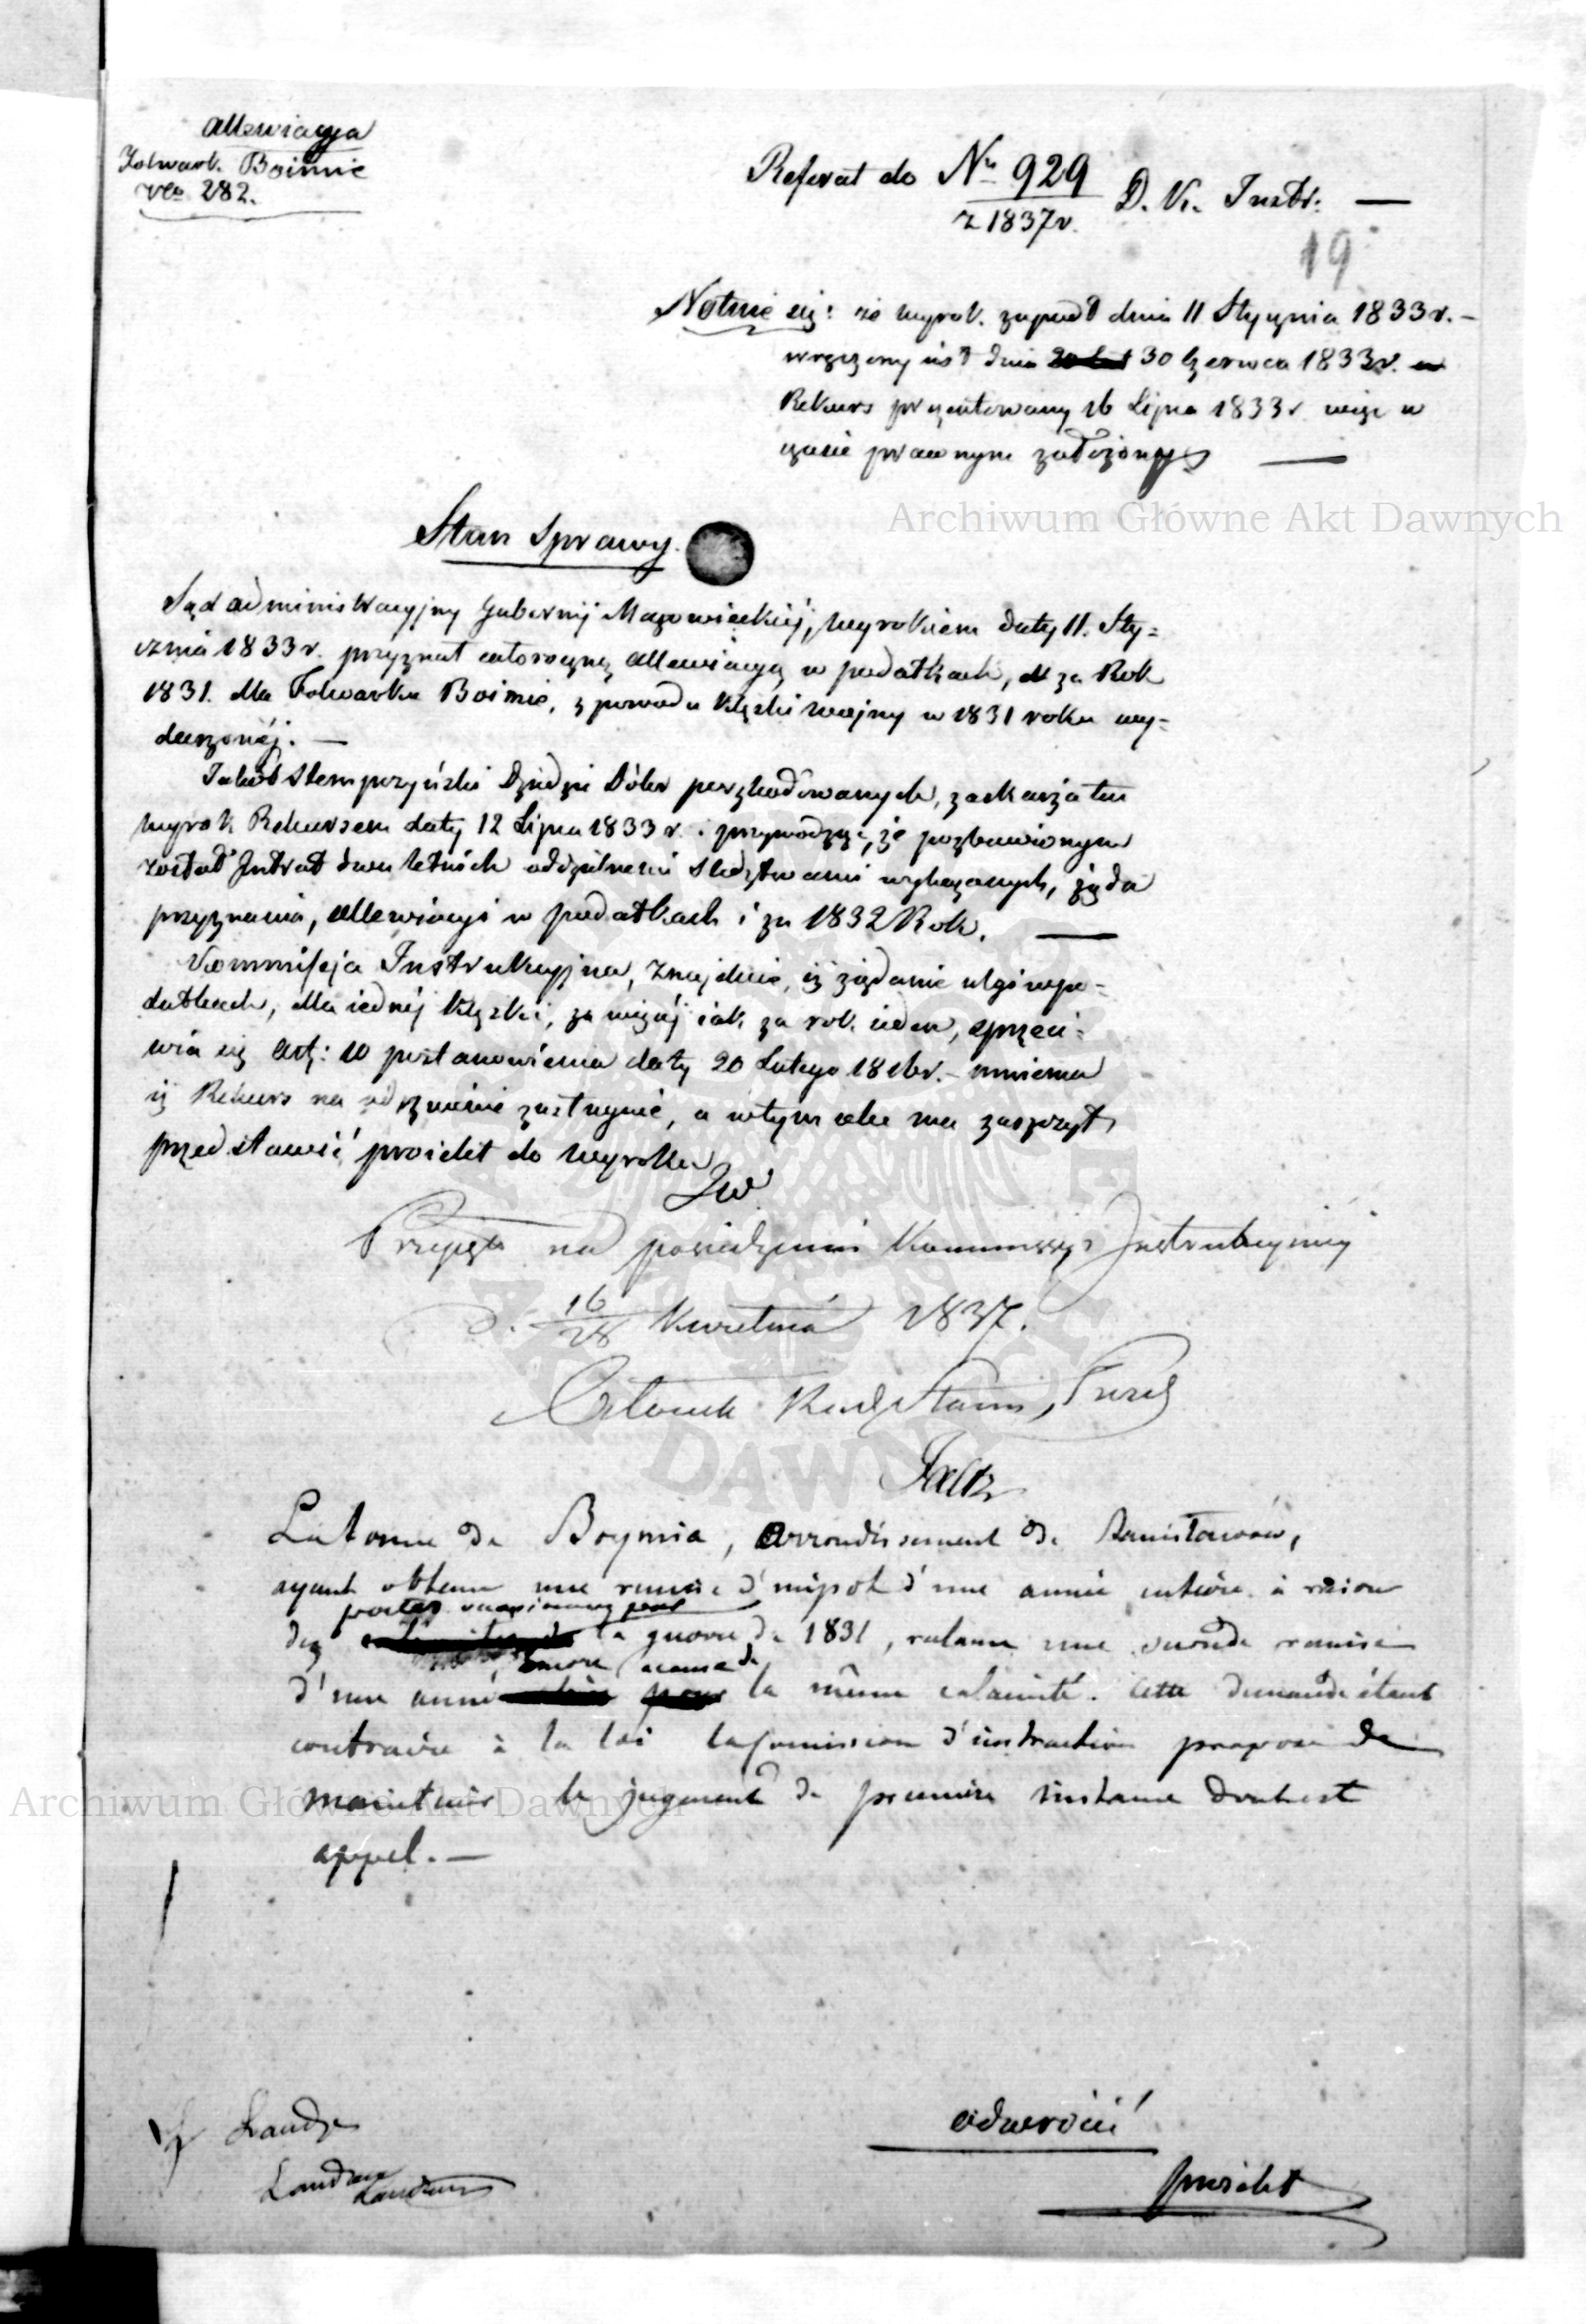 Allewiacyja
Folwark. Boimie
Nro 282.
Referat do Nr. 929 D. K. Instr: —
z 1837 r.
19
Notuie się: że wyrok. zapadł dnia 11 Stycznia 1833 r. –
wręczony iest dnia 30 Czerwca 1833 r.
Rekurs prezentowany 16 Lipca 1833 r więc w
czasie prawnym założony —
Archiwum Główne Akt Dawnych
Stan Sprawy.
Sąd administracyjny Gubernij Mazowieckiéj, wyrokiem daty 11. Sty=
cznia 1833 r. przyznał całoroczną allewiacyą w podatkach, za Rok
1831. dla Folwarku Boimie, z powodu klęski wojny w 1831 roku wy=
darzonéj. —
Jakób Stemprzyński Dziedzic Dóbr poszkodowanych, zaskarża ten
wyrok Rekursem daty 12 Lipca 1833 r. i przywodząc, że pozbawionym
został Intrat dwuletnich oddzielnemi śledztwami wykazanych, żąda
przyznania, allewiacyi w podatkach i za 1832 Rok. —
Kommissja Instrukcyjna, znajduie, iż żądanie ulgi w po=
datkach, dla iednéj klęski, za więcéj iak za rok ieden, sprzeci=
wia się Art: 10 postanowienia daty 20 Lutego 1816 r. – mniema
iż Rekurs na odrzucenie zasługuie, a w tym celu ma zaszczyt
przedstawić proiekt do wyroku
Przyjęto na posiedzeniu Kommissyi Instrukcyinéj
d. 16/28 Kwietnia 1837.
Członek Rady Stanu, Prezd
La terre de Boymia, arrondissement de Stanisławów,
ayant obtenu une remise d'impot d'une année entière à raison
pertes occasionnées par
des la guerre de 1831, reclame une seconde remise
encore à cause de
d'une année la même calamité. Cette demande étant
contraire à la loi la Commission d'instruction propose de
maintenir le jugement de première instance dont est
Archiwum Główne Akt Dawnych
appel. —
odwrócić
proiekt